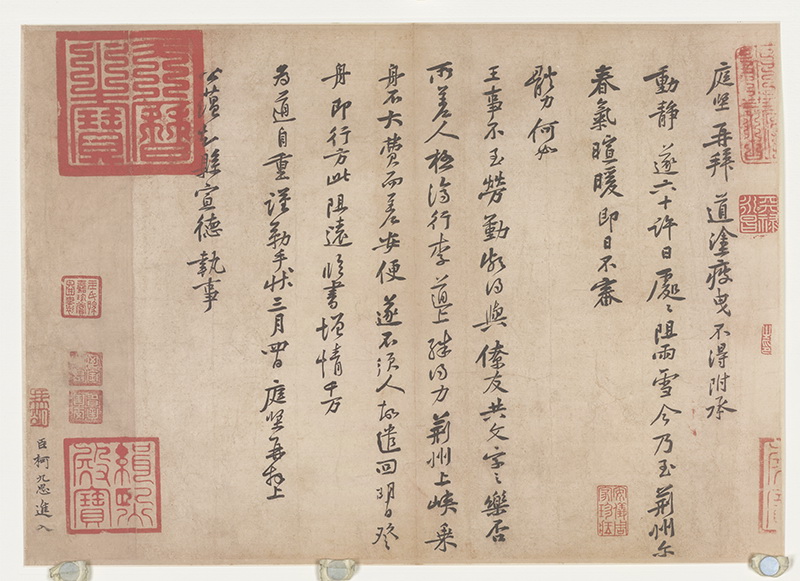 庭堅再拜道塗疲曳不得附承
動靜遂六十許日處處阻雨雪今乃至荊州尔
春氣暄暖即日不審
體力何如
王事不至勞勤頗得與僚友共文字之樂否
所差人極濟行李道上殊得力荊州上峽乘
舟不大費而差安便遂不須人故遣回明日登
舟即行方此阻遠臨書增情千万
為道自重謹勒手狀三月四日庭堅再拜上
公蘊知縣宣德執事
臣柯九思進入
天曆之寶
緝熙殿寶
安儀周家珍藏